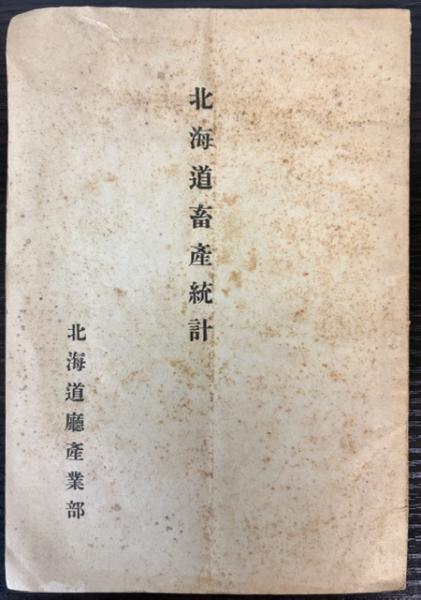 北海道畜產統計
北海道廳產業部